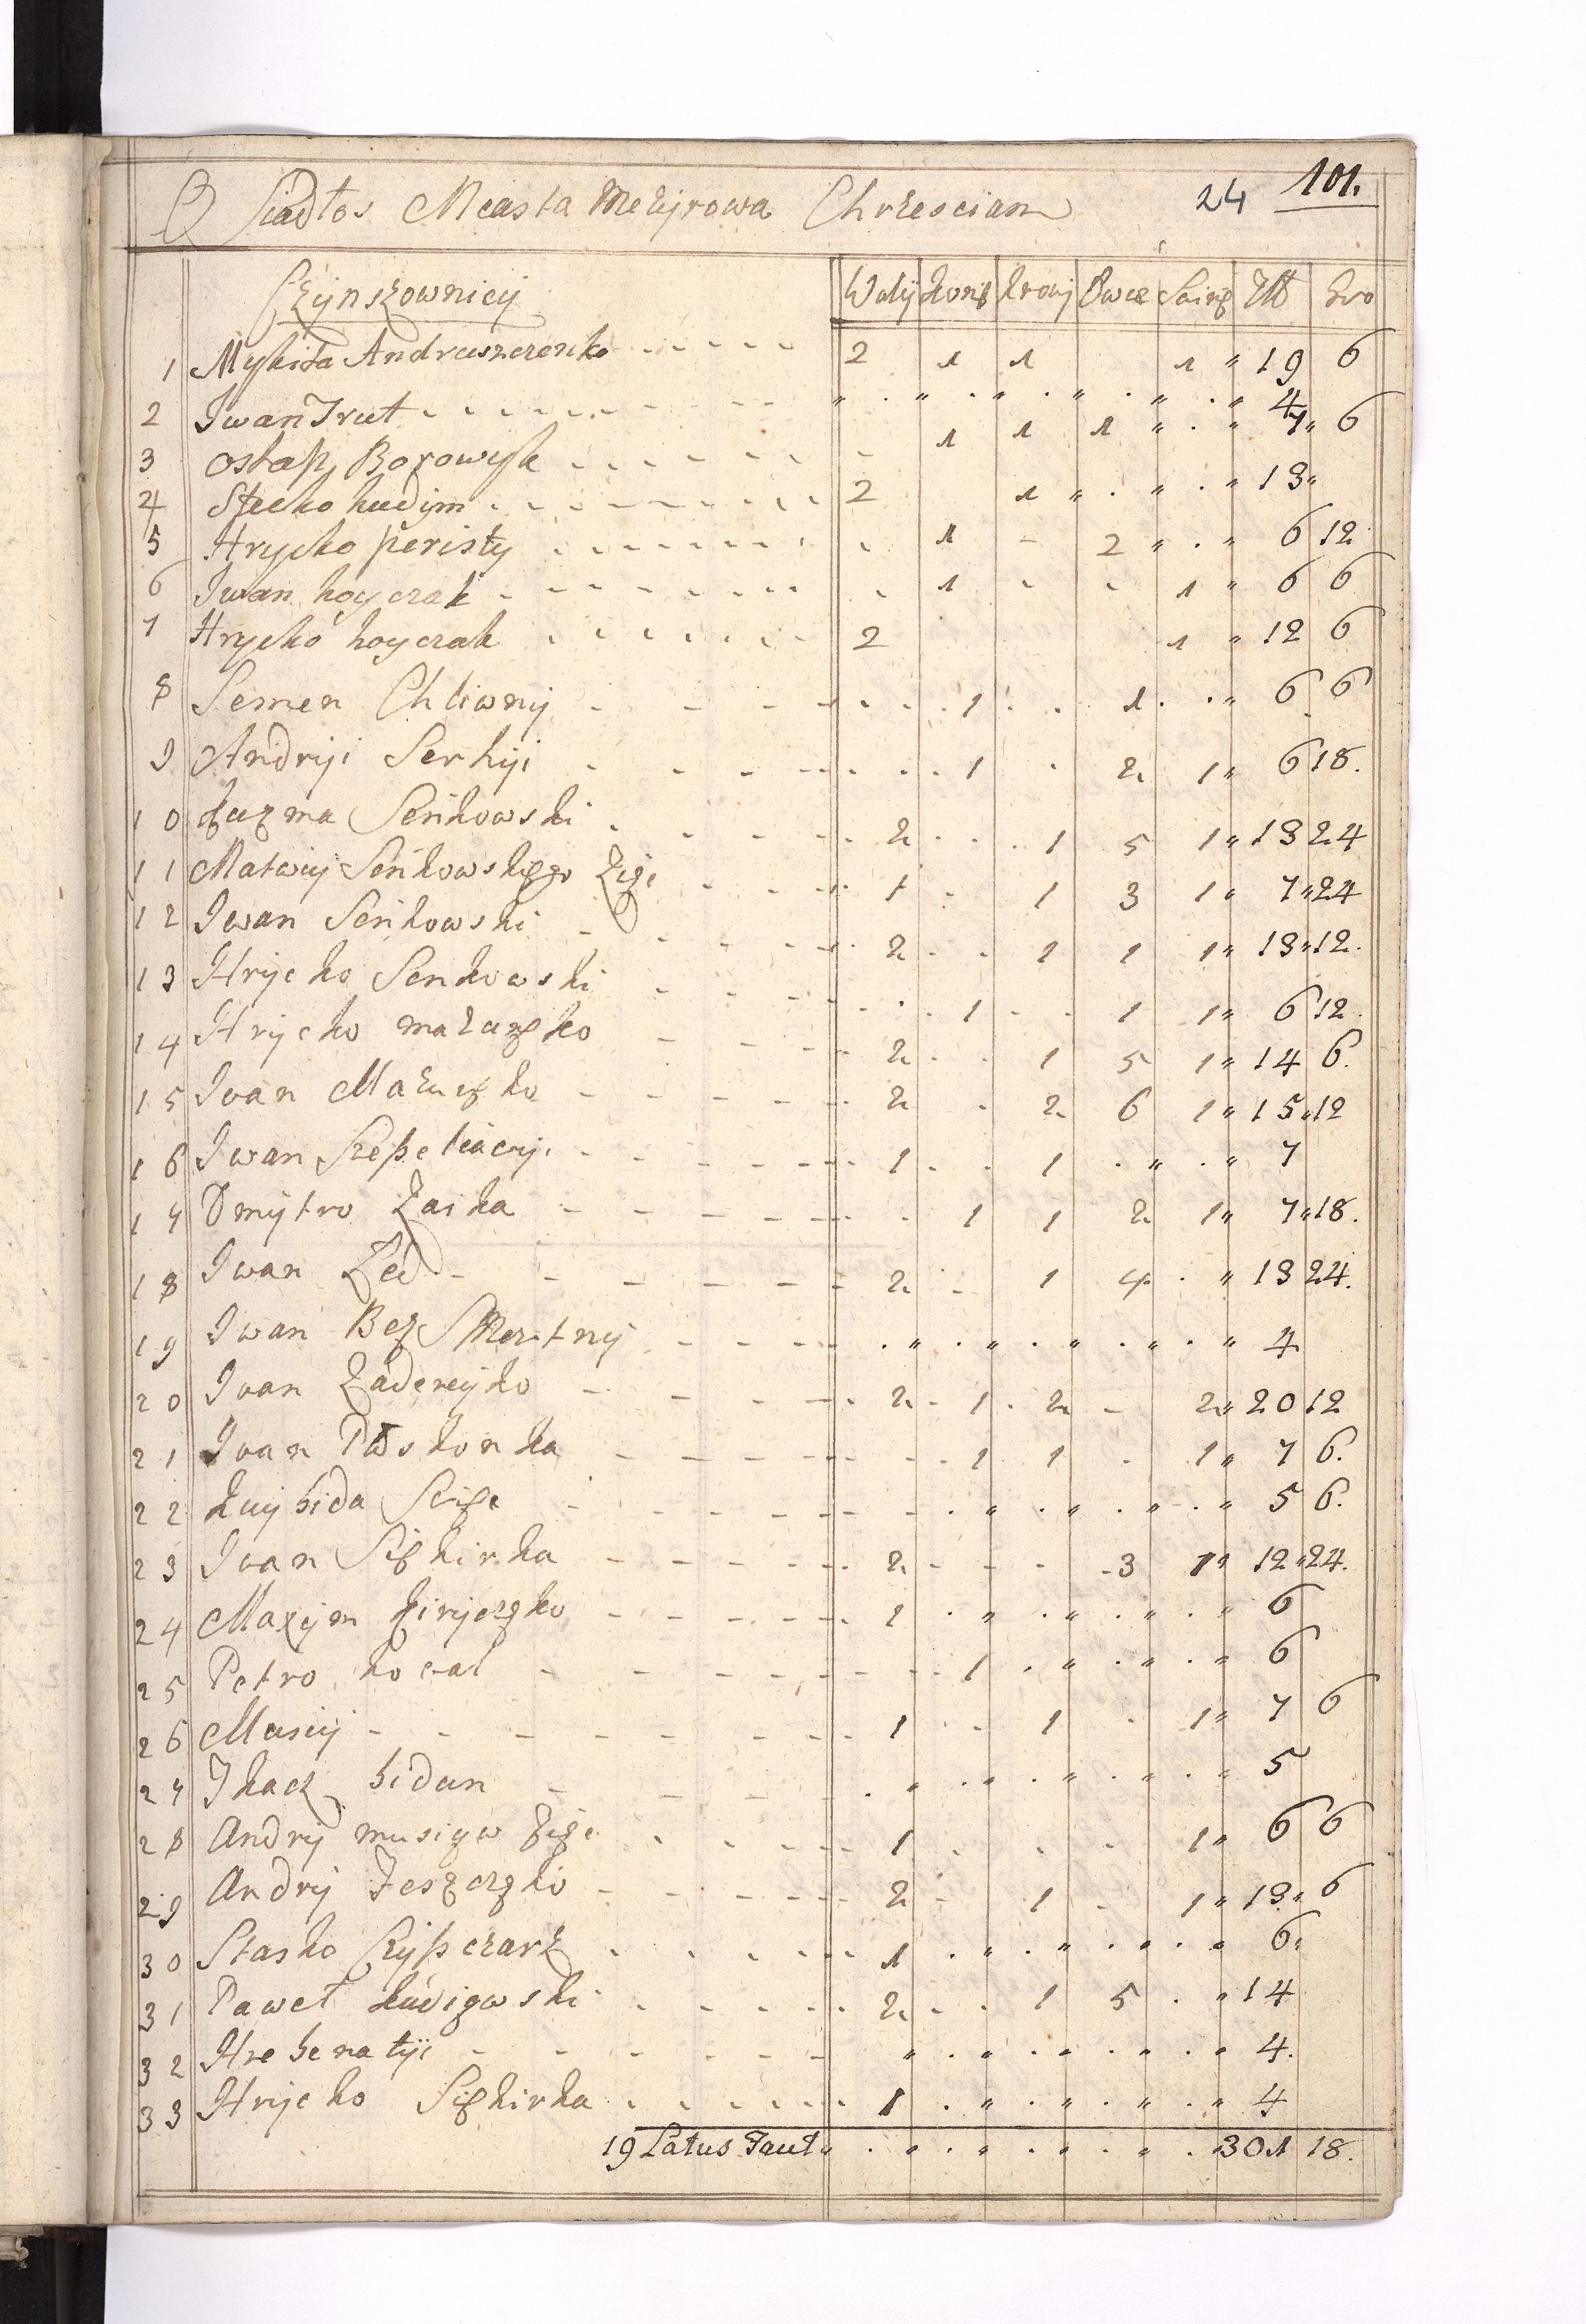 24 101.
Osiadłos Miasta Meżyrowa Chrzescian
Czÿnszownicÿ Wołÿ Konie Krowÿ Owce Swine Złł Gro
1 Mykita Andruszczenko 2 1 1 1 " 19 6
2 Iwan Trut " " " " " " 4
3 Ostap Borowyk 1 1 1 " " 7 " 6
4 Stecko kudym 2 1 " " " 13 "
5 Hrycko peristy 1 2 " " 6 12
6 Iwan koyczak 1 1 " 6 6
7 Hrycko koyczak 2 1 " 12 6
8 Semen Chliwnÿ 1 1 " 6 6
9 Andrÿi Serhÿi 1 2 1 " 6 18.
10 Kuzma Seńkowski 2 1 5 1 " 13 24
11 Matwiÿ Seńkowskiego Zięc 1 1 3 1 " 7 " 24
12 Iwan Seńkowski 2 1 1 1 " 13 " 12.
13 Hrÿcko Seńkowski 1 1 1 " 6 12.
14 Hrÿcko mażuzko 2 1 5 1 " 14 6.
15 Iwan Mażuzko 2 2 6 1 " 15 " 12
16 Iwan Szepetiaczÿi 1 1 " " 7
17 Dmÿtro Zaika 1 1 2 1 " 7 " 18.
18 Iwan Zed 2 1 4 " 13 24.
19 Iwan Bez Smertnÿ " " " " " 4
20 Iwan Zadereÿko 2 1 2 2 " 20 12
21 Iwan Paskonka 1 1 1 " 7 6.
22 " " " 5 6.
23 Iwan Siekirka 2 3 1 " 12 " 24.
24 Maxÿm Kirÿczko 1 " " " " 6
25 Petro kowal 1 " " " 6
26 Musiÿ 1 1 1 " 7 6
27 Tkacz bidun " " " " " 5
28 Andrÿ musiÿw Zięc 1 1 " 6 6
29 Andrÿ Leszczko 2 1 1 " 13 " 6
30 Stasko 1 " " " " 6 "
31 Paweł 2 1 5 " 14
32 Hrebenatÿi " " " " " 4.
33 Hrÿcko Siekirka 1 " " " " 4
19 Latus Facit " " " " 301 18.